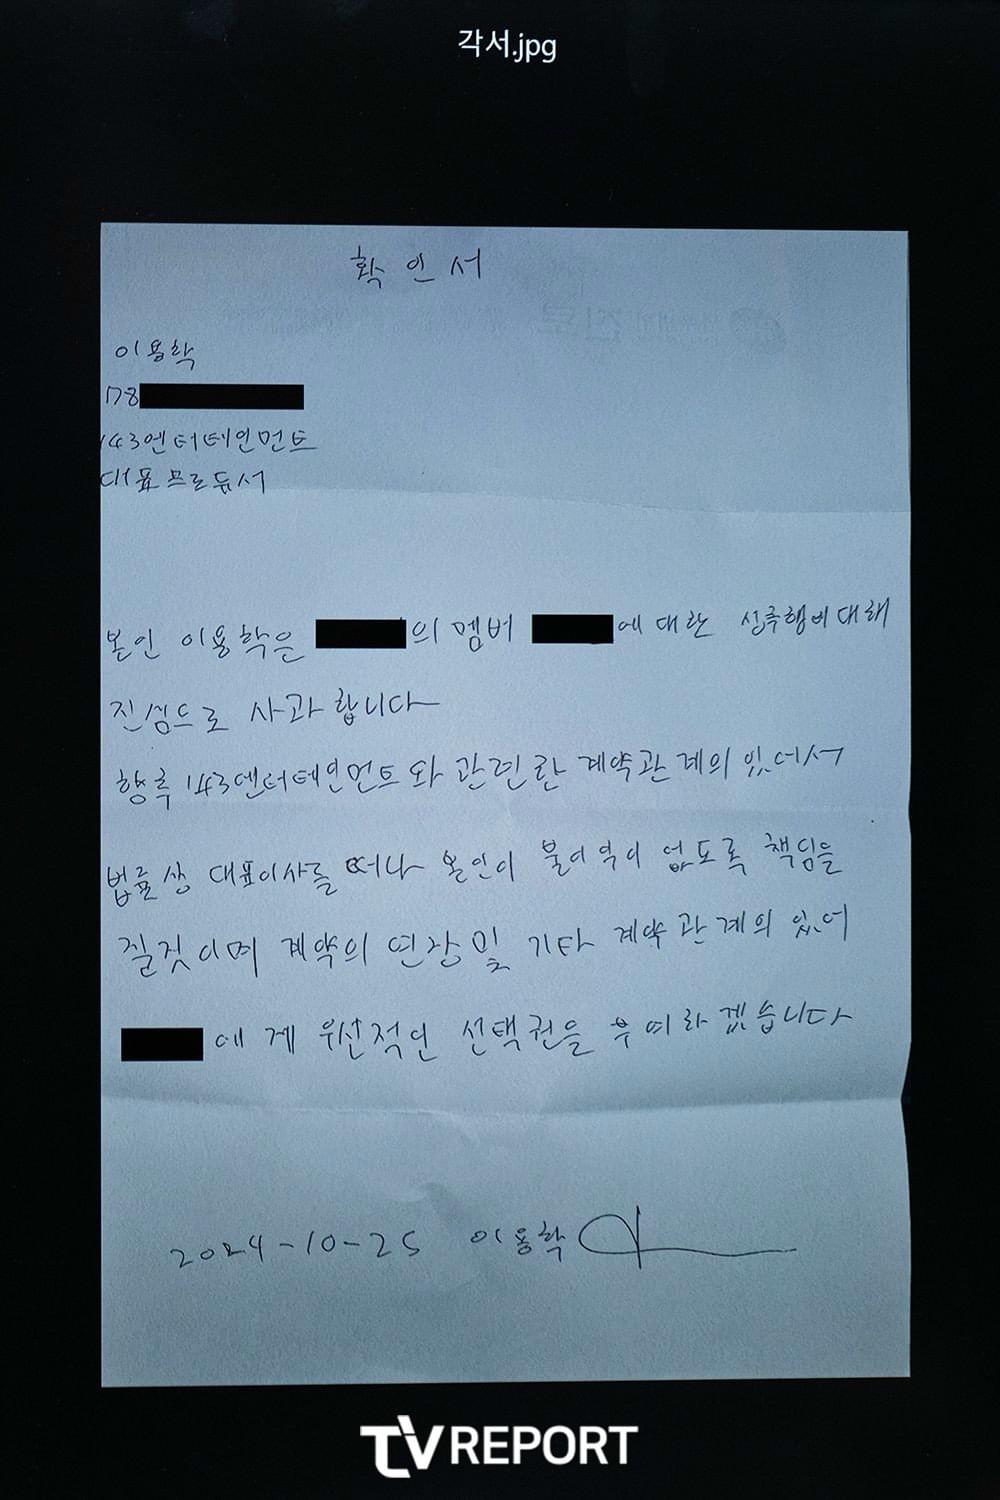 각서.jpg
확인서
이용학
178
143엔터테인먼트
대표프로듀서
본인 이용학은 의 멤버 에 대한 성추행에 대해
진심으로 사과합니다
향후 143엔터테인먼트와 관련한 계약관계의 있어서
법률상 대표이사를 떠나 본인이 불이익이 없도록 책임을
질것이며 계약의 연장 및 기타 계약관계의 있어
에게 우선적인 선택권을 부여하겠습니다
2024-10-25 이용학
TV REPORT